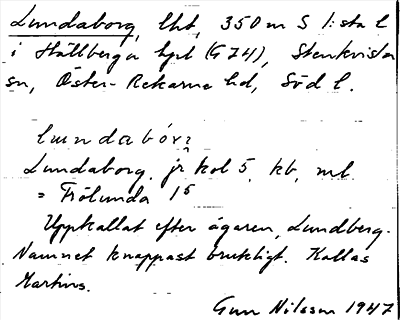 Lundaborg, lht, 350 m S l:sta l
i Hällberga hpl (G 74), Stenkvista
sn, Öster-Rekarne hd, Söd l.
lundabórj
Lundaborg. jr kol 5, kb, ml
= Frölunda 1⁵
Uppkallat efter ägaren, Lundberg.
Namnet knappast brukligt. Kallas
Martins.
Gun Nilsson 1947